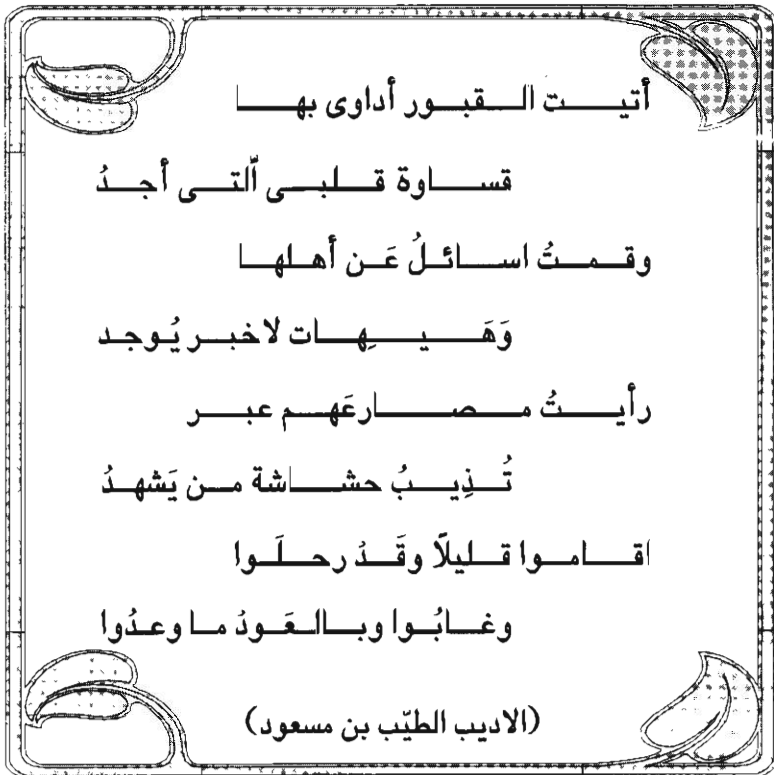 أتيت القبور أداوى بها
قساوة قلبى ٱلتى أجدُ
وقمتُ اسائلُ عَن أهلها
وَهَيهِات لاخبر يُوجد
رأيتُ مصارعَهم عبر
تُذِيبُ حشاشة من يَشهدُ
اقاموا قليلًا وقَدُ رحلَوا
وغابُوا وبالعَودُ ما وعدُوا
(الاديب الطيّب بن مسعود)